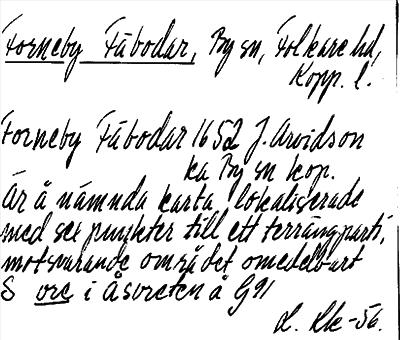 Forneby Fäbodar, By sn, Folkare hd,
Kopp. l.
Forneby Fäbodar 1652 J. Arvidson
ka By sn kop.
Är å nämnda karta, lokaliserade
med sex punkter till ett terrängparti,
motsvarande området omedelbart
S ore i Åsvreten å G91
L. -56.